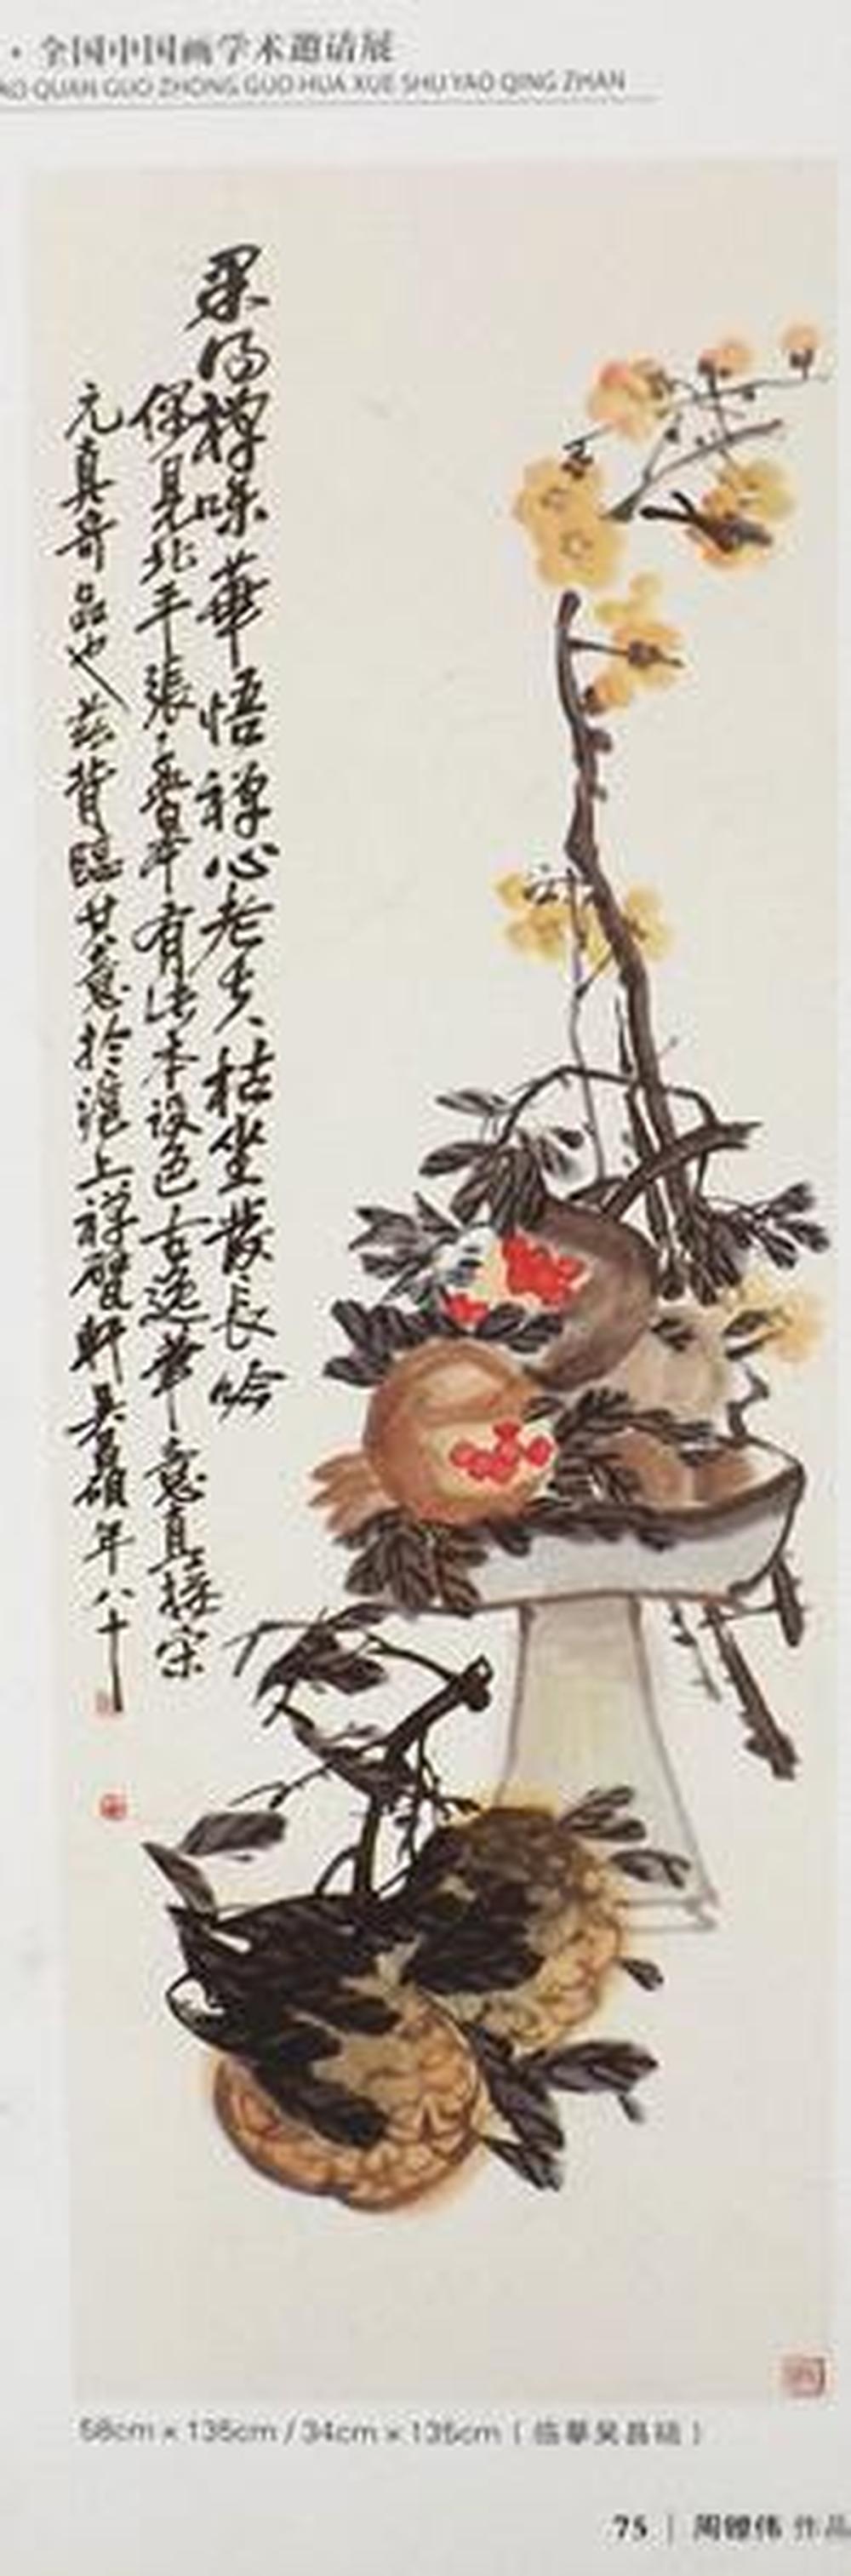 · 全国中国画学术邀请展
AO QUAN GUO ZHONG GUO HUA XUE SHU YAO QING ZHAN
果得禅味华悟禅心老夫枯坐发长吟
偶见北平張 有此本设色古逸華意真接宋
元真奇品也兹背臨其意於滬上禅甓軒吴昌碩年八十
58cm × 135cm / 34cm × 135cm ( 临摹吴昌硕 )
75 | 周 伟 作品